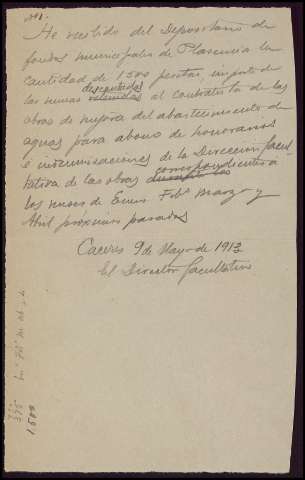 He recibido del Depositario de
fondos municipales de Plasencia la
cantidad de 1500 pesetas, importe de
descontadas
las sumas retenidas al contratista de las
obras de mejora del abastecimiento de
aguas para abono de honorarios
é indemnizaciones de la Dirección facul
tativa de las obras correspondientes á
los meses de Enero Febº Marzo y
Abril próximos pasados
Caceres 9 de Mayo de 1913
El Director facultativo
375
1500